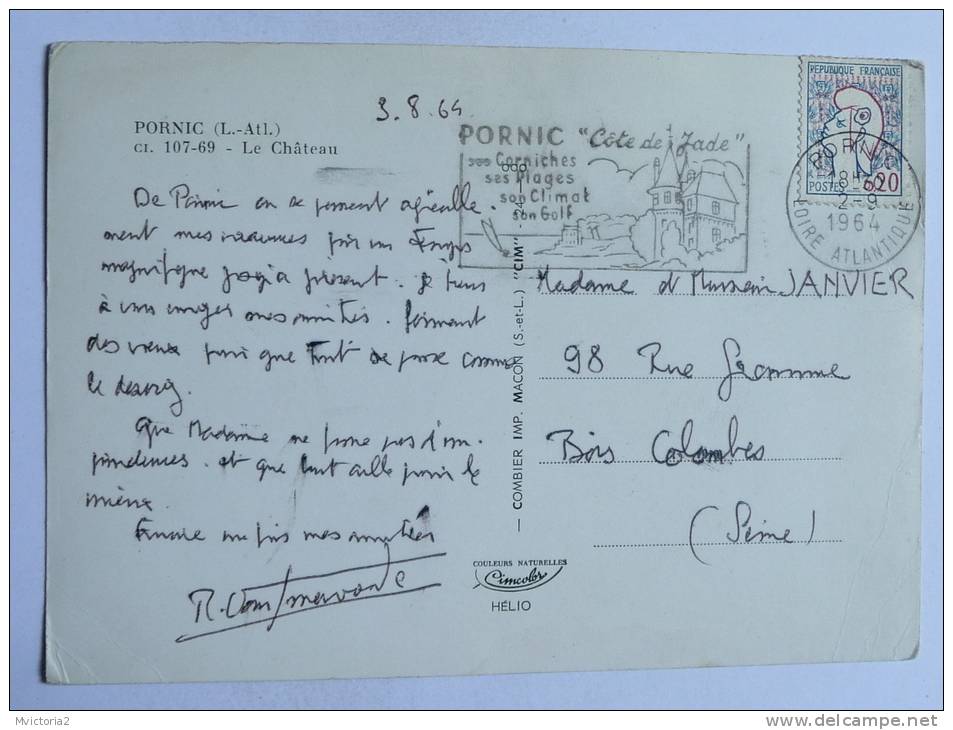 PORNIC (L.-Atl.)
CI. 107-69 - Le Château
3.8.64
De Pornic où se passent agréable
ment mes vacances par un temps
magnifique jusqu'à présent. Je tiens
à vous envoyer mes amitiés. formant
des vœux pour que tout se passe comme
le desirez.
Que Madame ne fasse pas d'im-
prudences. et que tout aille pour le
mieux.
Encore une fois mes amitiés
PORNIC "Côte de Jade"
ses Corniches
ses Plages
son Climat
son Golf
REPUBLIQUE FRANÇAISE
POSTES 0,20
PORNIC
18H30
2-9
1964
LOIRE ATLANTIQUE
Madame et Monsieur JANVIER
98 Rue
Bois Colombes
(Seine)
COMBIER IMP. MACON (S.-et-L.) "CIM"
COULEURS NATURELLES
Cimcolor
HÉLIO
Mvictoria2
http://www.delcampe.net